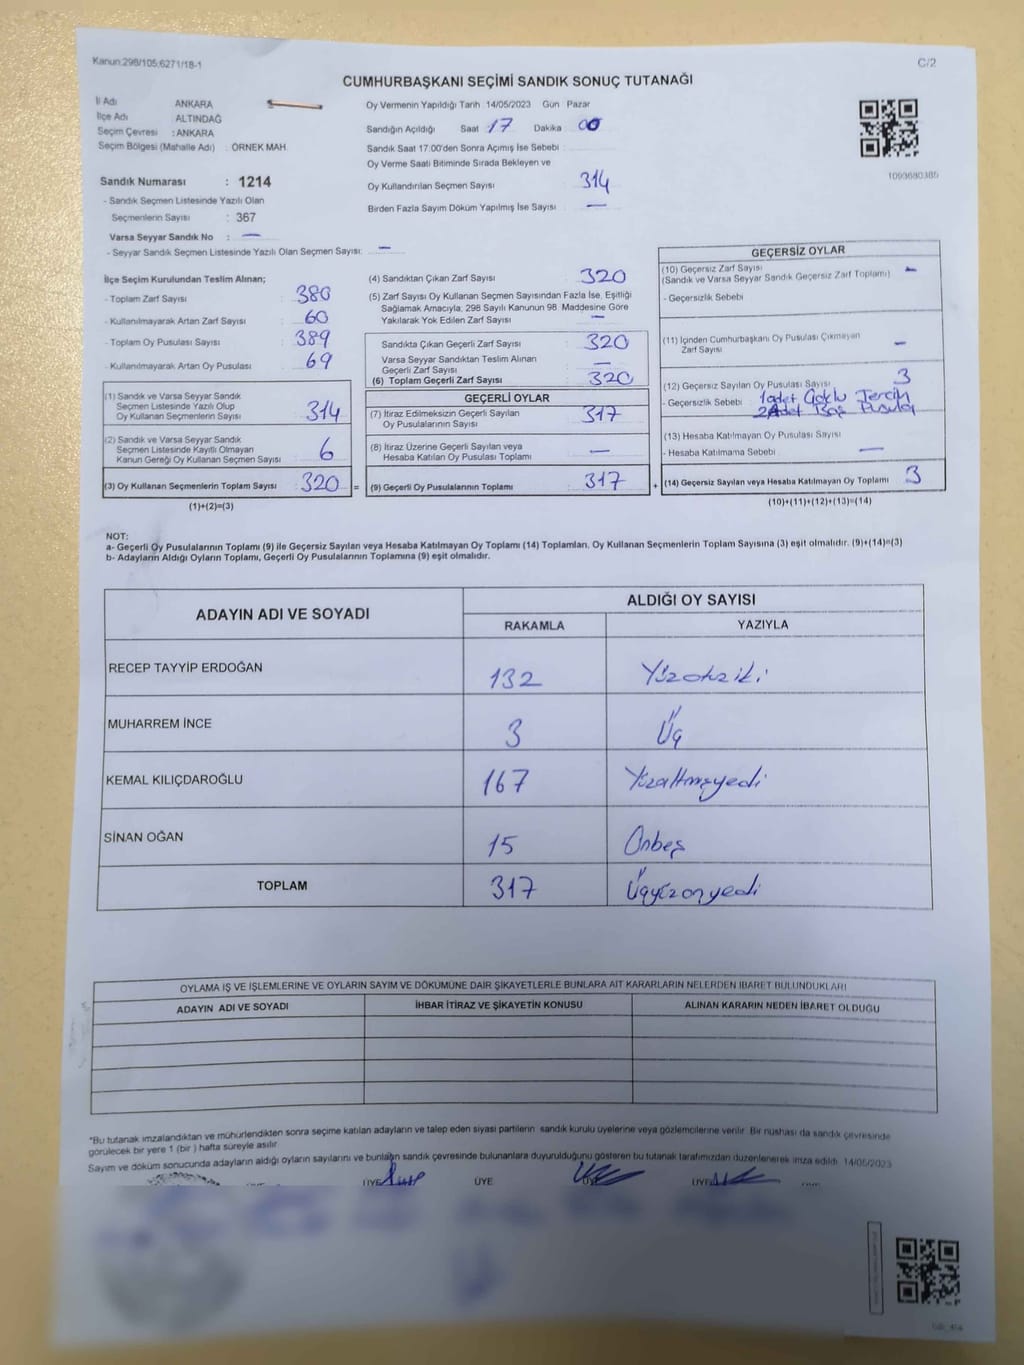 Kanun:298/105;6271/18-1
C/2
CUMHURBAŞKANI SEÇİMİ SANDIK SONUÇ TUTANAĞI
İl Adı ANKARA
İlçe Adı ALTINDAĞ
Seçim Çevresi : ANKARA
Seçim Bölgesi (Mahalle Adı) : ÖRNEK MAH.
Sandık Numarası : 1214
- Sandık Seçmen Listesinde Yazılı Olan
Seçmenlerin Sayısı : 367
Varsa Seyyar Sandık No : —
- Seyyar Sandık Seçmen Listesinde Yazılı Olan Seçmen Sayısı: —
Oy Vermenin Yapıldığı Tarih 14/05/2023 Gün Pazar
Sandığın Açıldığı Saat 17 Dakika 00
Sandık Saat 17:00'den Sonra Açımış İse Sebebi :
Oy Verme Saati Bitiminde Sırada Bekleyen ve
Oy Kullandırılan Seçmen Sayısı 314
Birden Fazla Sayım Döküm Yapılmış İse Sayısı —
1093680385
İlçe Seçim Kurulundan Teslim Alınan;
- Toplam Zarf Sayısı : 380
- Kullanılmayarak Artan Zarf Sayısı : 60
- Toplam Oy Pusulası Sayısı : 389
- Kullanılmayarak Artan Oy Pusulası : 69
(1) Sandık ve Varsa Seyyar Sandık
Seçmen Listesinde Yazılı Olup
Oy Kullanan Seçmenlerin Sayısı : 314
(2) Sandık ve Varsa Seyyar Sandık
Seçmen Listesinde Kayıtlı Olmayan
Kanun Gereği Oy Kullanan Seçmen Sayısı : 6
(3) Oy Kullanan Seçmenlerin Toplam Sayısı : 320
(1)+(2)=(3)
(4) Sandıktan Çıkan Zarf Sayısı : 320
(5) Zarf Sayısı Oy Kullanan Seçmen Sayısından Fazla İse, Eşitliği
Sağlamak Amacıyla, 298 Sayılı Kanunun 98. Maddesine Göre
Yakılarak Yok Edilen Zarf Sayısı : —
Sandıkta Çıkan Geçerli Zarf Sayısı : 320
Varsa Seyyar Sandıktan Teslim Alınan
Geçerli Zarf Sayısı : —
(6) Toplam Geçerli Zarf Sayısı : 320
GEÇERLİ OYLAR
(7) İtiraz Edilmeksizin Geçerli Sayılan
Oy Pusulalarının Sayısı : 317
(8) İtiraz Üzerine Geçerli Sayılan veya
Hesaba Katılan Oy Pusulası Toplamı : —
= (9) Geçerli Oy Pusulalarının Toplamı : 317 +
GEÇERSİZ OYLAR
(10) Geçersiz Zarf Sayısı —
(Sandık ve Varsa Seyyar Sandık Geçersiz Zarf Toplamı)
- Geçersizlik Sebebi
(11) İçinden Cumhurbaşkanı Oy Pusulası Çıkmayan
Zarf Sayısı —
(12) Geçersiz Sayılan Oy Pusulası Sayısı 3
- Geçersizlik Sebebi : 1 adet Çoklu Tercih
2 Adet Boş Pusula
(13) Hesaba Katılmayan Oy Pusulası Sayısı
- Hesaba Katılmama Sebebi : —
(14) Geçersiz Sayılan veya Hesaba Katılmayan Oy Toplamı 3
(10)+(11)+(12)+(13)=(14)
NOT:
a- Geçerli Oy Pusulalarının Toplamı (9) ile Geçersiz Sayılan veya Hesaba Katılmayan Oy Toplamı (14) Toplamları, Oy Kullanan Seçmenlerin Toplam Sayısına (3) eşit olmalıdır. (9)+(14)=(3)
b- Adayların Aldığı Oyların Toplamı, Geçerli Oy Pusulalarının Toplamına (9) eşit olmalıdır.
ADAYIN ADI VE SOYADI
ALDIĞI OY SAYISI
RAKAMLA YAZIYLA
RECEP TAYYİP ERDOĞAN 132 Yüzotuziki
MUHARREM İNCE 3 Üç
KEMAL KILIÇDAROĞLU 167 Yüzaltmışyedi
SİNAN OĞAN 15 Onbeş
TOPLAM 317 Üçyüzonyedi
OYLAMA İŞ VE İŞLEMLERİNE VE OYLARIN SAYIM VE DÖKÜMÜNE DAİR ŞİKAYETLERLE BUNLARA AİT KARARLARIN NELERDEN İBARET BULUNDUKLARI
ADAYIN ADI VE SOYADI İHBAR İTİRAZ VE ŞİKAYETİN KONUSU ALINAN KARARIN NEDEN İBARET OLDUĞU
*Bu tutanak imzalandıktan ve mühürlendikten sonra seçime katılan adayların ve talep eden siyasi partilerin sandık kurulu üyelerine veya gözlemcilerine verilir. Bir nüshası da sandık çevresinde
görülecek bir yere 1 (bir) hafta süreyle asılır.
Sayım ve döküm sonucunda adayların aldığı oyların sayılarını ve bunların sandık çevresinde bulunanlara duyurulduğunu gösteren bu tutanak tarafımızdan düzenlenerek imza edildi. 14/05/2023
ÜYE ÜYE ÜYE ÜYE